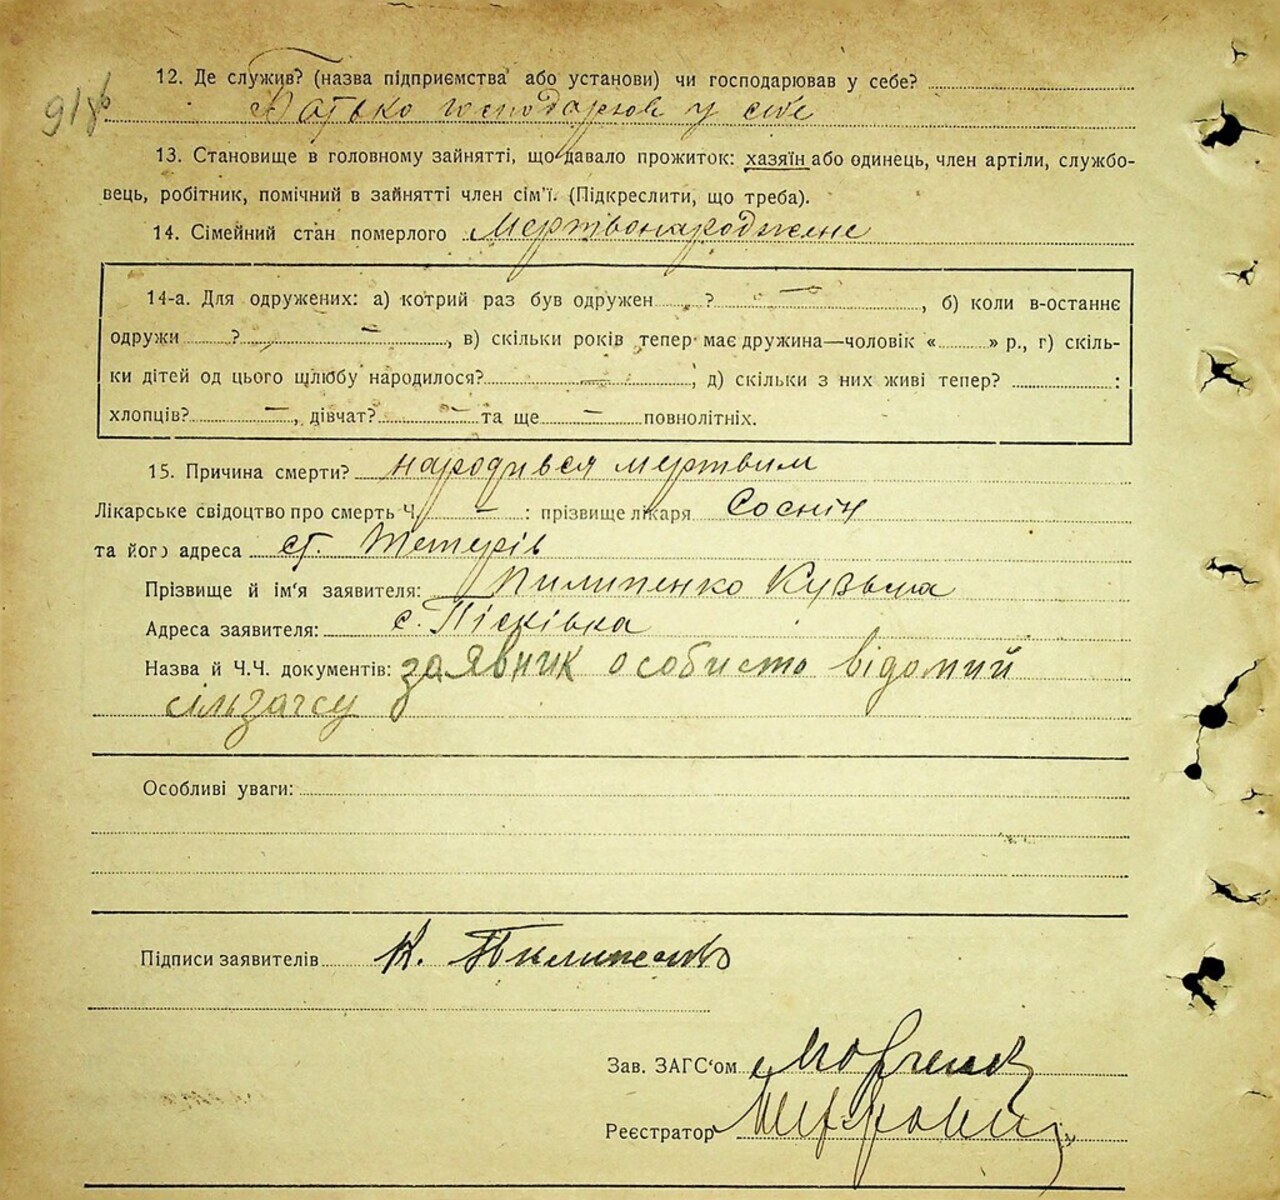 12. Де служив? (назва підприємства або установи) чи господарював у себе?
Батько господарював у себе
13. Становище в головному зайнятті, що давало прожиток: хазяїн або одинець, член артіли, службо-
вець, робітник, помічний в зайнятті член сім'ї. (Підкреслити, що треба).
14. Сімейний стан померлого Мертвонароджене
14-а. Для одружених: а) котрий раз був одружен ? — , б) коли в-останнє
одружи ? — , в) скільки років тепер має дружина—чоловік « » р., г) скіль-
ки дітей од цього шлюбу народилося? — , д) скільки з них живі тепер? :
хлопців? — , дівчат? — та ще — повнолітніх.
15. Причина смерти? народився мертвим
Лікарське свідоцтво про смерть Ч. — : прізвище лікаря Соснін
та його адреса ст. Тетерів
Прізвище й ім'я заявителя: Пилипенко Кузьма
Адреса заявителя: с. Пісківка
Назва й Ч.Ч. документів: заявник особисто відомий
сільзагсу
Особливі уваги:
Підписи заявителів К. Пилипенко
Зав. ЗАГС'ом
Реєстратор